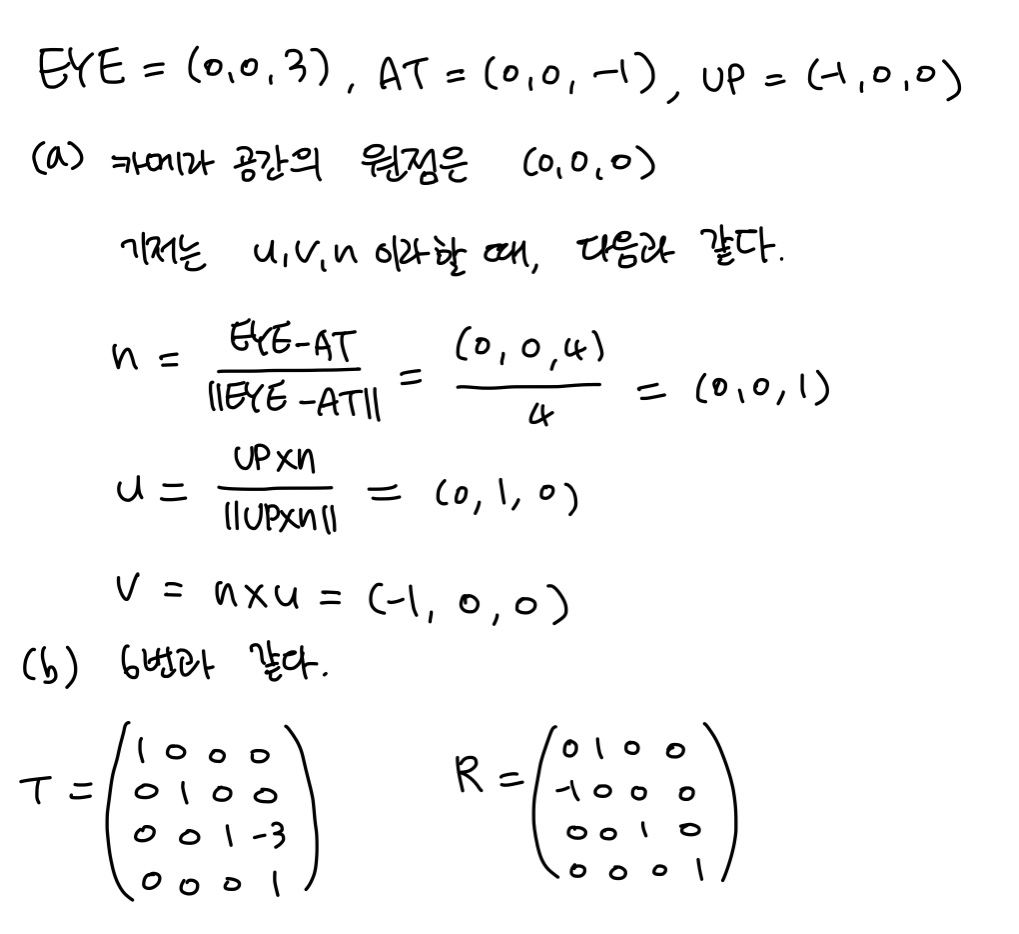 EYE = (0,0,3), AT = (0,0,-1), UP = (-1,0,0)
(a) 카메라 공간의 원점은 (0,0,0)
기저는 u,v,n 이라할 때, 다음과 같다.
n = EYE-AT / ||EYE-AT|| = (0,0,4) / 4 = (0,0,1)
u = UP×n / ||UP×n|| = (0,1,0)
v = n×u = (-1,0,0)
(b) 6번과 같다.
T = (1 0 0 0 R = (0 1 0 0
0 1 0 0 -1 0 0 0
0 0 1 -3 0 0 1 0
0 0 0 1) 0 0 0 1)